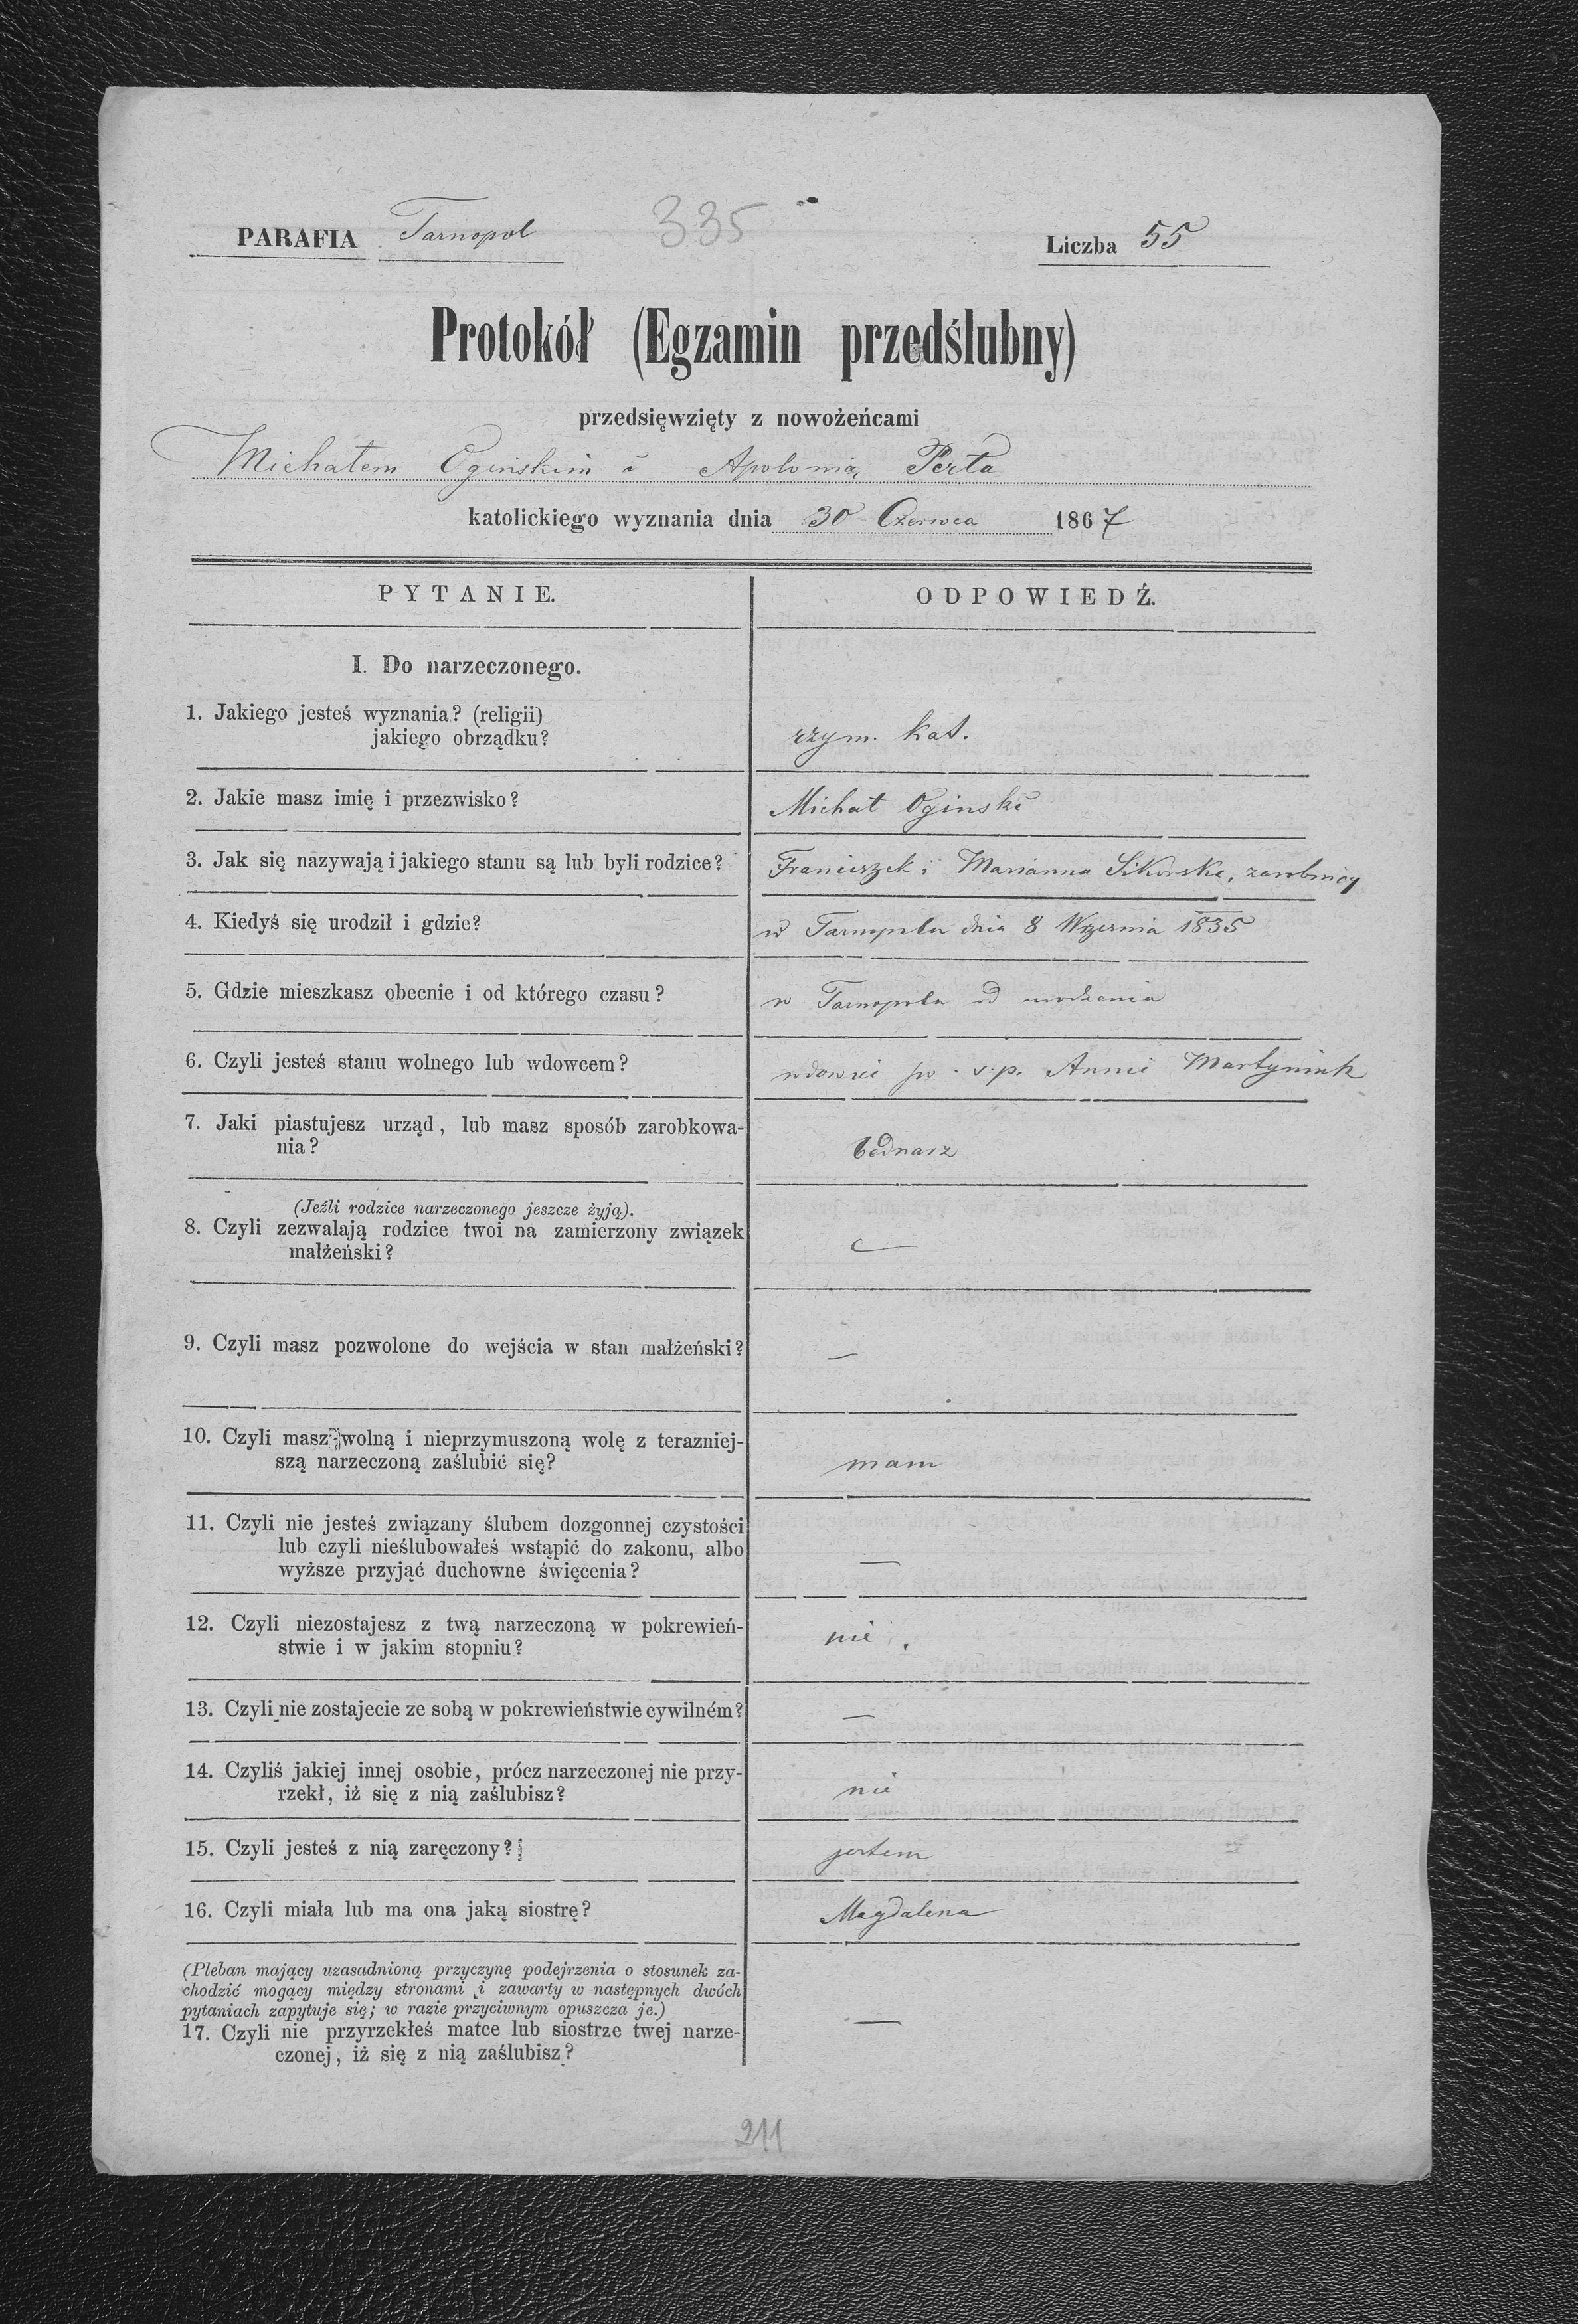 PARAFIA Tarnopol 335 Liczba 55
Protokół (Egzamin przedślubny)
przedsięwzięty z nowożeńcami
Michałem Oginskim i Apolonią Perła
katolickiego wyznania dnia 30 Czerwca 1867
PYTANIE. ODPOWIEDŹ.
I. Do narzeczonego.
1. Jakiego jesteś wyznania? (religii)
jakiego obrządku? rzym. kat.
2. Jakie masz imię i przezwisko? Michał Oginski
3. Jak się nazywają i jakiego stanu są lub byli rodzice? Franciszek i Marianna Sikorska, zarobnicy
4. Kiedyś się urodził i gdzie? w Tarnopolu dnia 8 Września 1835
5. Gdzie mieszkasz obecnie i od którego czasu? w Tarnopolu od urodzenia
6. Czyli jesteś stanu wolnego lub wdowcem? wdowiec po ś.p. Annie Martyniuk
7. Jaki piastujesz urząd, lub masz sposób zarobkowa-
nia? bednarz
(Jeźli rodzice narzeczonego jeszcze żyją).
8. Czyli zezwalają rodzice twoi na zamierzony związek
małżeński? —
9. Czyli masz pozwolone do wejścia w stan małżeński? —
10. Czyli masz wolną i nieprzymuszoną wolę z terazniej-
szą narzeczoną zaślubić się? mam
11. Czyli nie jesteś związany ślubem dozgonnej czystości
lub czyli nieślubowałeś wstąpić do zakonu, albo
wyższe przyjąć duchowne święcenia? —
12. Czyli niezostajesz z twą narzeczoną w pokrewień-
stwie i w jakim stopniu? nie.
13. Czyli nie zostajecie ze sobą w pokrewieństwie cywilném? —
14. Czyliś jakiej innej osobie, prócz narzeczonej nie przy-
rzekł, iż się z nią zaślubisz? nie
15. Czyli jesteś z nią zaręczony? jestem
16. Czyli miała lub ma ona jaką siostrę? Magdalena
(Pleban mający uzasadnioną przyczynę podejrzenia o stosunek za-
chodzić mogący między stronami i zawarty w następnych dwóch
pytaniach zapytuje się; w razie przyciwnym opuszcza je.)
17. Czyli nie przyrzekłeś matce lub siostrze twej narze- —
czonej, iż się z nią zaślubisz?
211